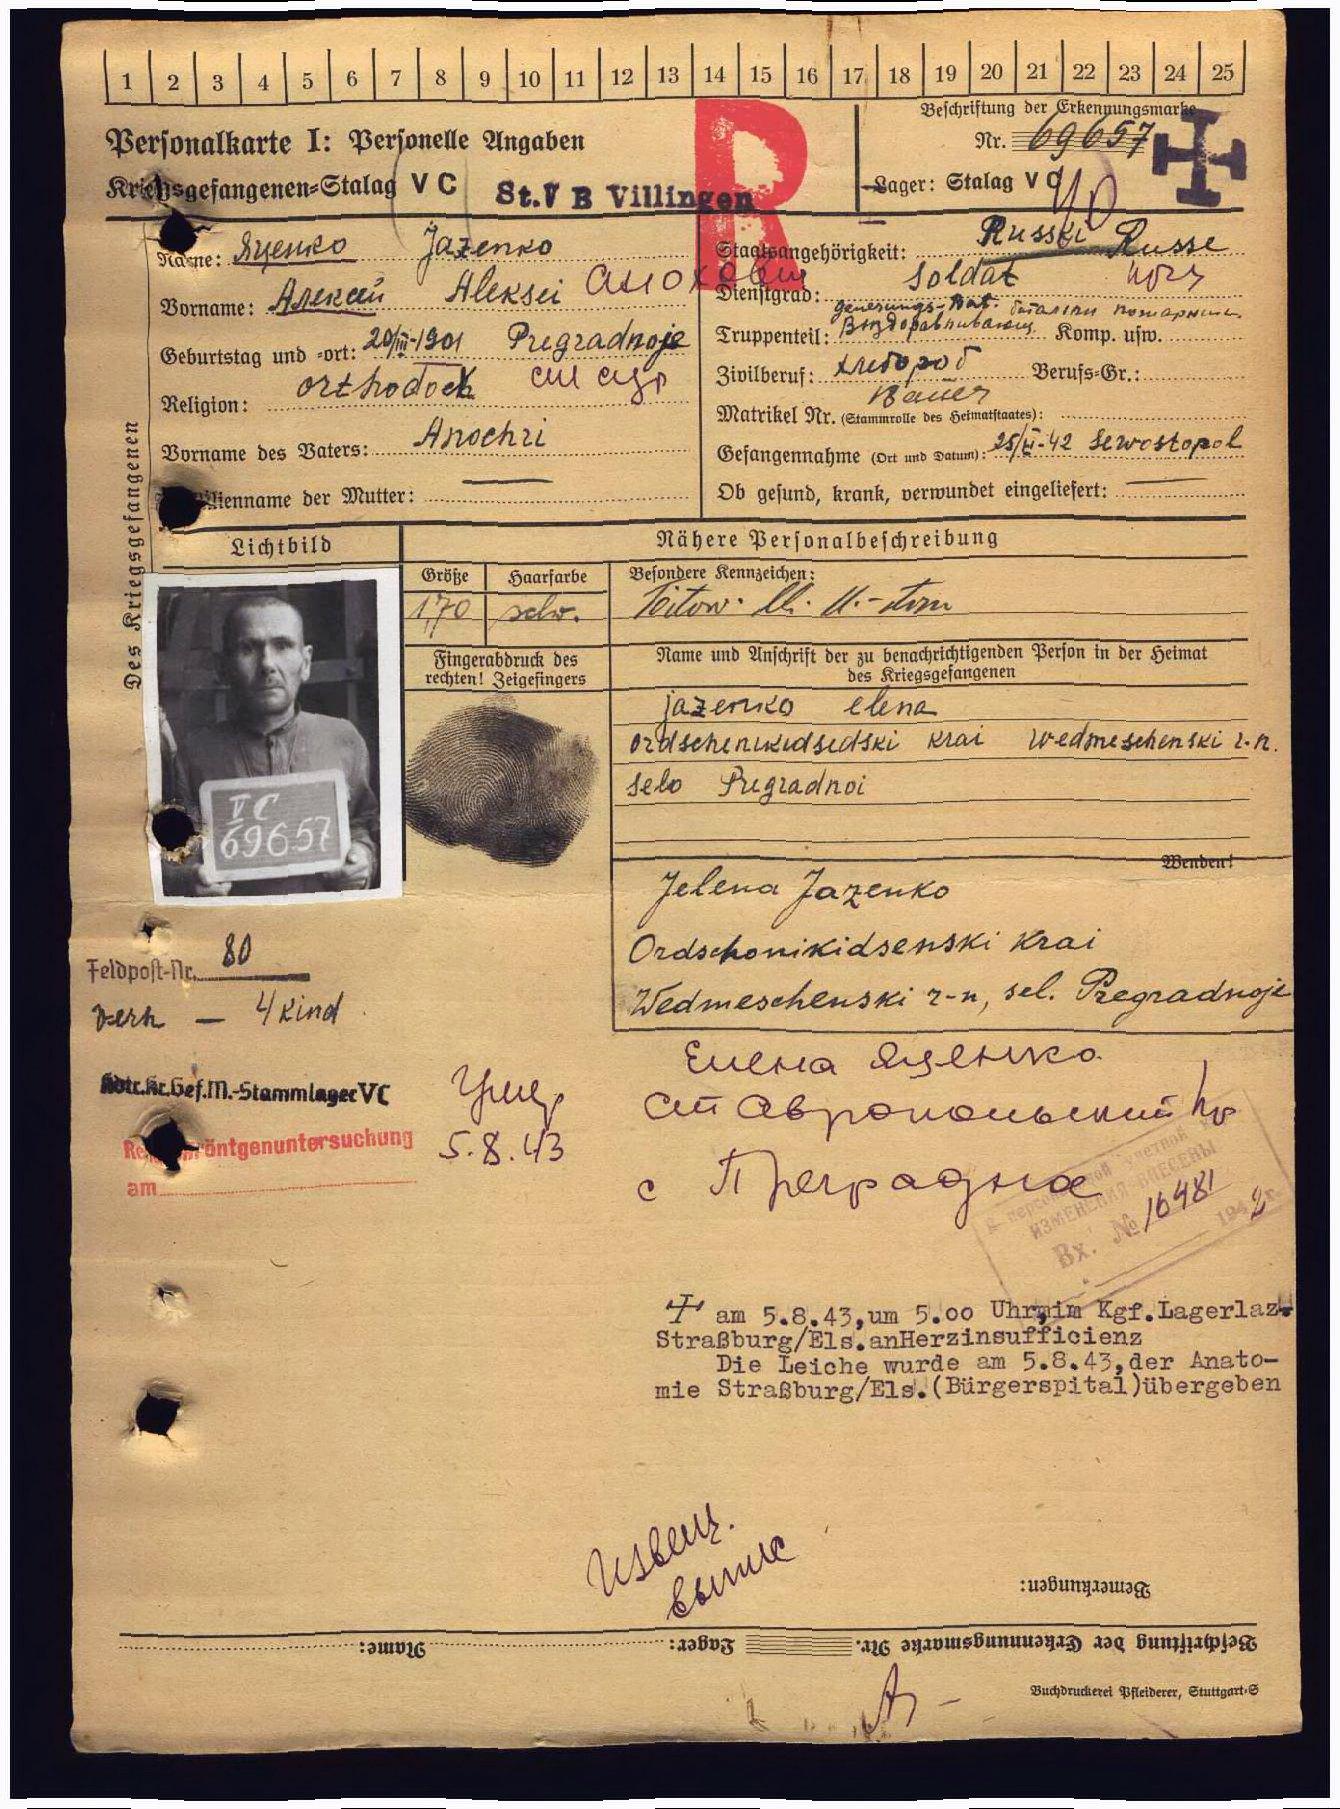 1 2 3 4 5 6 7 8 9 10 11 12 13 14 15 16 17 18 19 20 21 22 23 24 25
Personalkarte I: Personelle Angaben
Kriegsgefangenen-Stalag V C St. V B Villingen
R
Beschriftung der Erkennungsmarke
Nr. 69657
Lager: Stalag V C
Des Kriegsgefangenen
Name: Яценко Jazenko
Vorname: Алексей Aleksei
Geburtstag und =ort: 20/III-1901 Pregradnoje
Religion: orthodox
Vorname des Vaters: Anochri
Familienname der Mutter: —
Staatsangehörigkeit: Russki Russe
Dienstgrad: Soldat
Truppenteil: Genesungs-Bat. Komp. usw.
Zivilberuf: хлебороб Berufs=Gr.:
Bauer
Matrikel Nr. (Stammrolle des Heimatstaates):
Gefangennahme (Ort und Datum): 25/VI-42 Sewostopol
Ob gesund, krank, verwundet eingeliefert: —
Lichtbild
Nähere Personalbeschreibung
Größe Haarfarbe Besondere Kennzeichen:
1,70 schw.
Fingerabdruck des
rechten! Zeigefingers
Name und Anschrift der zu benachrichtigenden Person in der Heimat
des Kriegsgefangenen
V C
69657
jazenko elena
ordschenikidsedski krai wedmeschenski r-n.
selo Pregradnoi
Wenden!
Jelena Jazenko
Ordschonikidsenski Krai
Wedmeschenski r-n, sel. Pregradnoje
Feldpost-Nr. 80
verh — 4 Kind
Kdtr.Kr.Gef.M.-Stammlager VC
röntgenuntersuchung
am
Умер
5.8.43
Елена Яценко
Ставропольский кр
с Преградное
ИЗМЕНЕНИЯ ВНЕСЕНЫ
Вх. № 10481
194
am 5.8.43,um 5.00 Uhr,im Kgf.Lagerlaz.
Straßburg/Els.anHerzinsufficienz
Die Leiche wurde am 5.8.43,der Anato-
mie Straßburg/Els.(Bürgerspital)übergeben
Извещ.
Bemerkungen:
Beschriftung der Erkennungsmarke Nr. Lager: Name:
Buchdruckerei Pfleiderer, Stuttgart=S